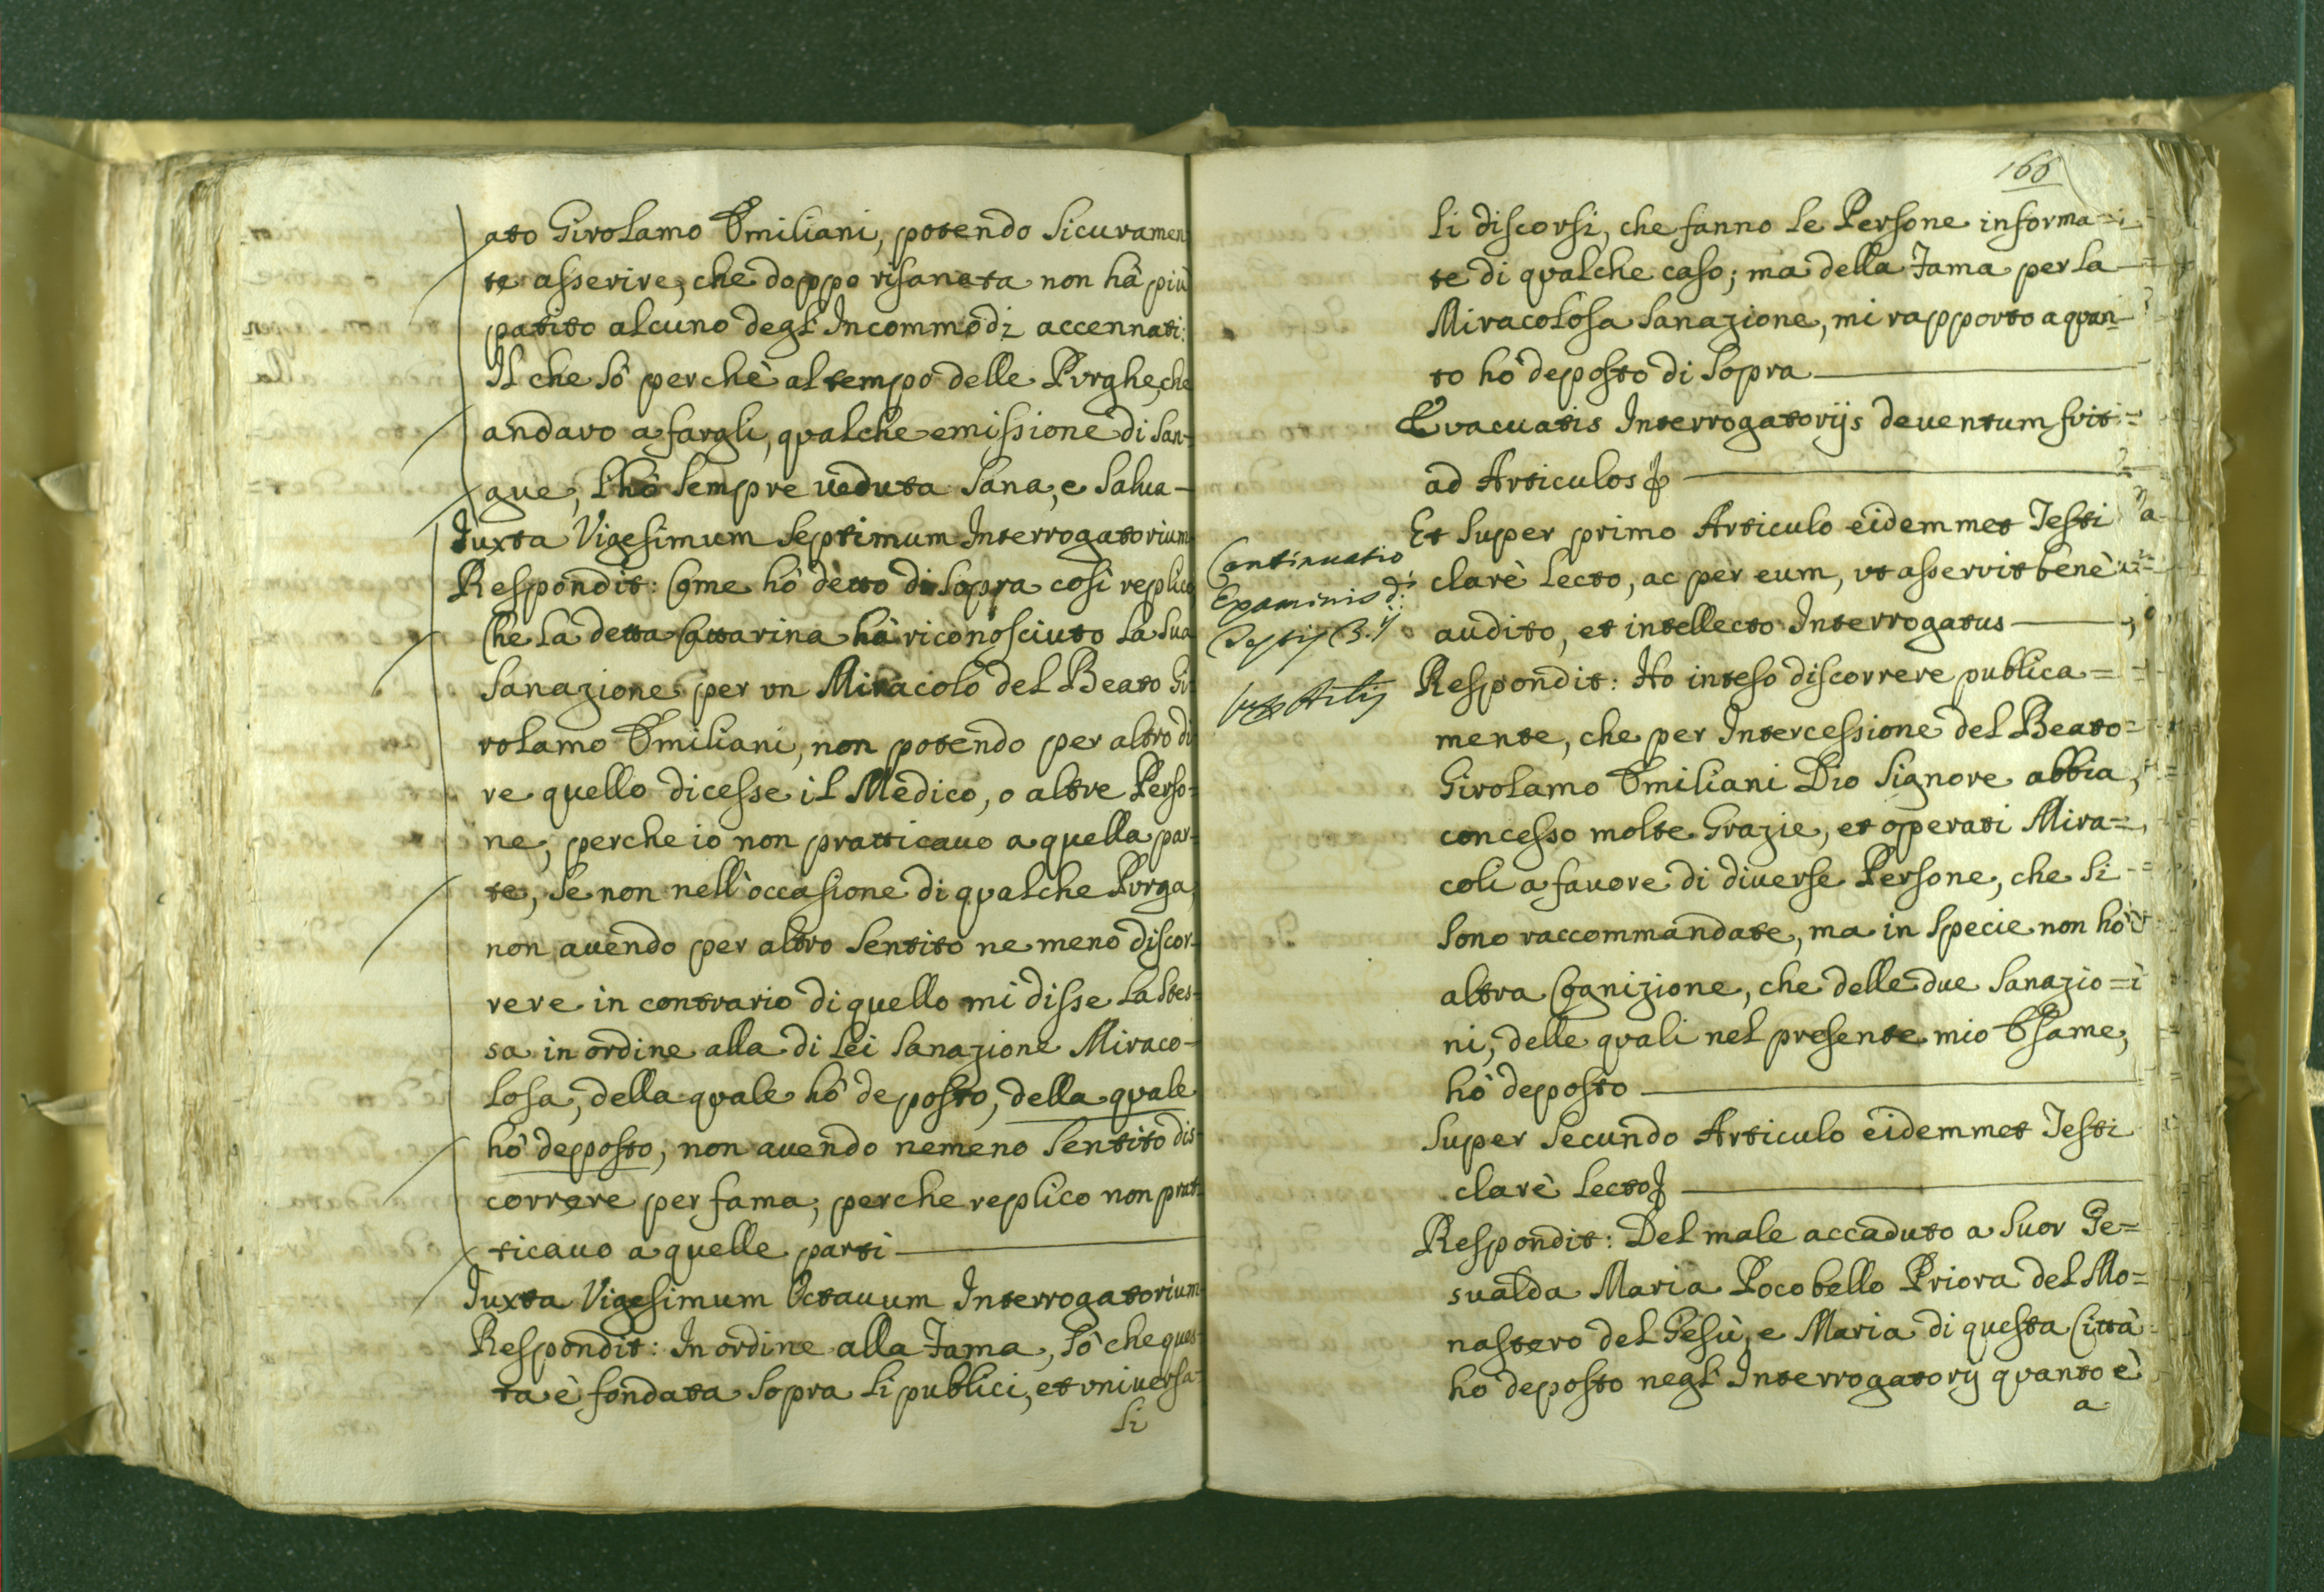 ato Girolamo Emiliani, potendo sicuramen
te asserire, che doppo risanata non hà più
patito alcuno degl'Incommodi accennati:
Il che sò perchè al tempo delle Purghe, che
andavo a fargli, qualche emissione di san-
gue, l'hò sempre veduta sana, e salua-
Juxta Vigesimum Septimum Interrogatorium
Respondit: Come hò detto di sopra così replico
Che la detta Cattarina hà riconosciuto la sua
sanazione per un Miracolo del Beato Gi-
rolamo Emiliani, non potendo per altro di
re quello dicesse il Medico, o altre Perso-
ne, perche io non pratticauo a quella par-
te, se non nell'occasione di qualche Purga,
non auendo per altro sentito ne meno discor-
rere in contrario di quello mi disse la stes-
sa in ordine alla di lei sanazione Miraco-
losa, della quale hò deposto, della quale
hò deposto, non auendo nemeno sentito dis-
correre per fama, perche replico non prat-
ticauo a quelle parti
Juxta Vigesimum Octauum Interrogatorium
Respondit: In ordine alla Fama, sò che ques-
ta è fondata sopra li publici, et uniuersa-
li
166
li discorsi, che fanno le Persone informa=
te di qualche caso; ma della Fama per la
Miracolosa sanazione, mi rapporto a quan-
to hò deposto di sopra
Evacuatis Interrogatorijs deuentum fuit
ad Articulos
Et super primo Articulo eidemmet Testi
clarè lecto, ac per eum, ut asseruit benè
audito, et intellecto Interrogatus
Continuatio
Examinis d:
Respondit: Ho inteso discorrere publica=
mente, che per Intercessione del Beato=
Girolamo Emiliani Dio Signore abbia
concesso molte Grazie, et operati Mira=
coli a fauore di diuerse Persone, che si
sono raccommandate, ma in specie non hò
altra Cognizione, che delle due sanazio=
ni, delle quali nel presente mio Esame,
hò deposto
Super Secundo Articulo eidemmet Testi
clarè lecto
Respondit: Del male accaduto a Suor Ge=
sualda Maria Pocobello Priora del Mo=
nastero del Gesù, e Maria di questa Città
ho deposto negl'Interrogatorij quanto è
a